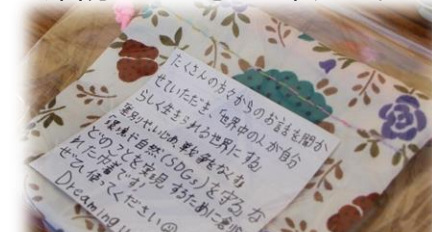 たくさんの方々からのお話を聞か
せていただき、「世界中の人が自分
らしく生きられる世界にする」
差別やいじめ、戦争をなくす
環境や自然(SDGs)を守るな
どのことを実現するために創ら
れた巾着です!
ぜひ使ってください☺
Dreaming